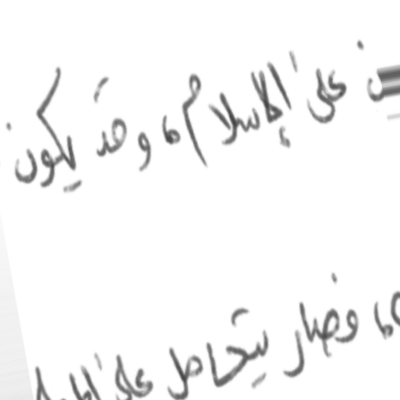 على الإسلام، وقد يكون
، فصار يتحامل على